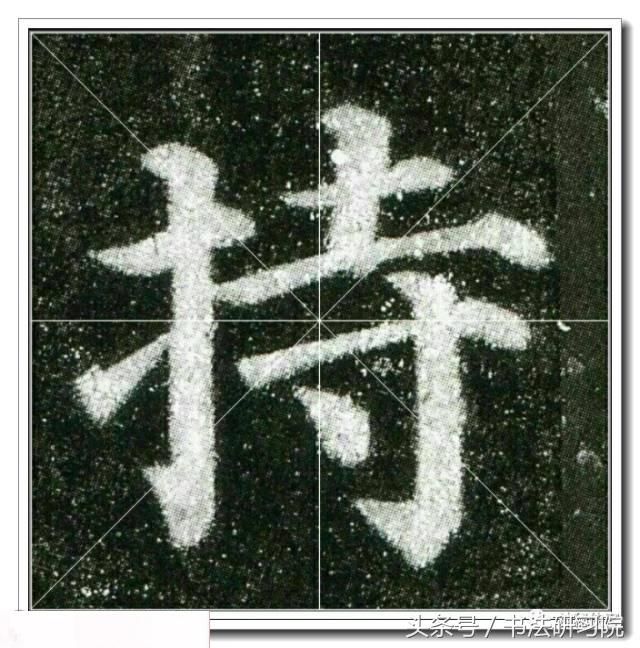 持
头条号 / 书法研习院